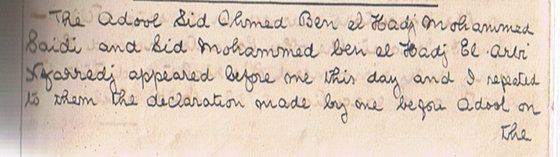 The Adool Sid Ahmed Ben el Hadj Mohammed
Saidi and Sid Mohammed ben el Hadj El Arbi
appeared before me this day and I repeated
to them the declaration made by me before Adool on
the